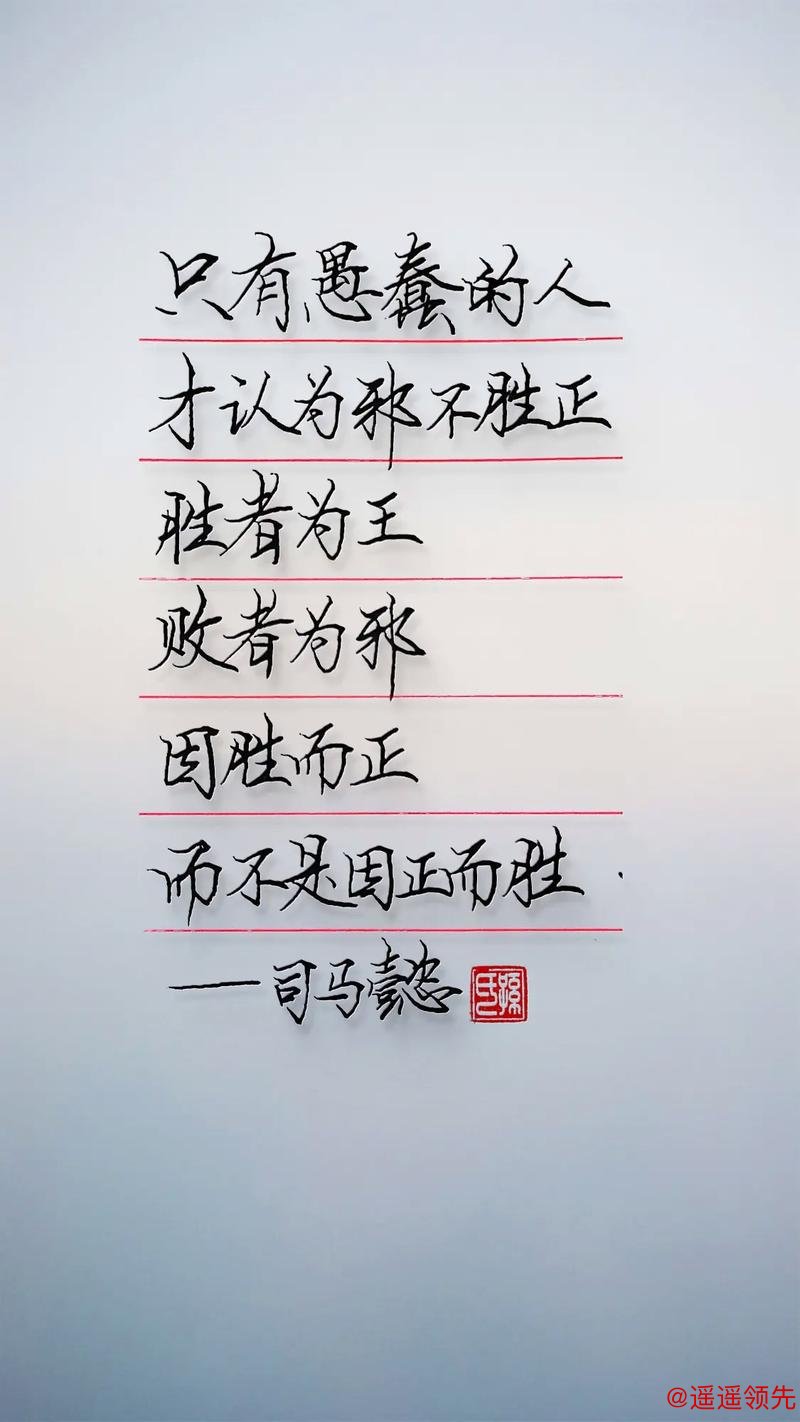 只有愚蠢的人
才认为邪不胜正
胜者为王
败者为邪
因胜而正
而不是因正而胜.
——司马懿
孫氏
@遥遥领先